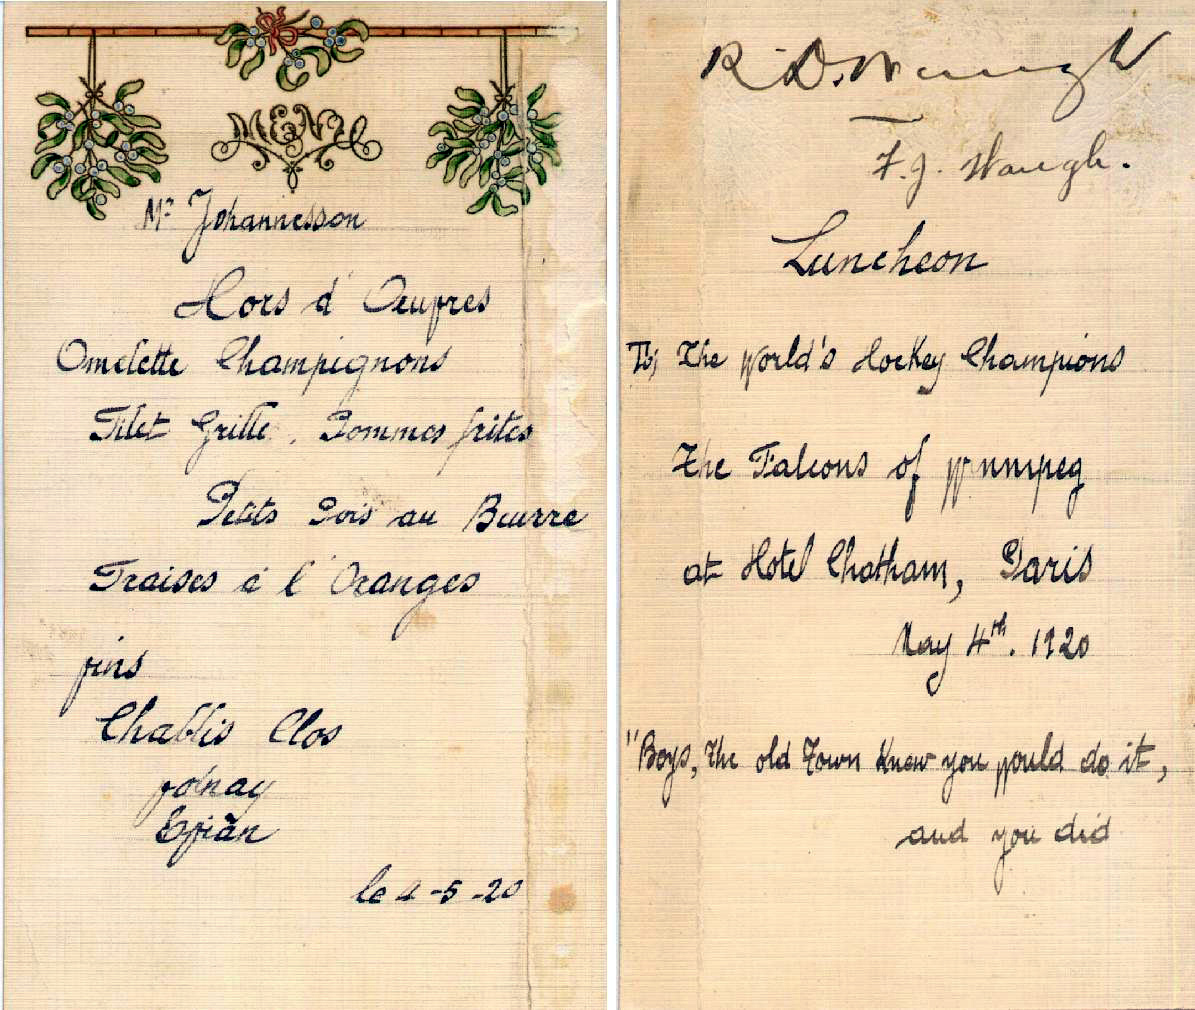 MENU
Mr Johannesson
Hors d'Oeuvres
Omelette Champignons
Filet Grille. Pommes frites
Petits Pois au Beurre
Fraises à l'Oranges
vins
Chablis Clos
Volnay
Evian
le 4-5-20
R.D. Waugh
F.J. Waugh.
Luncheon
To, The World's Hockey Champions
The Falcons of Winnipeg
at Hotel Chatham, Paris
May 4th. 1920
"Boys, The old Town Knew you would do it,
and you did